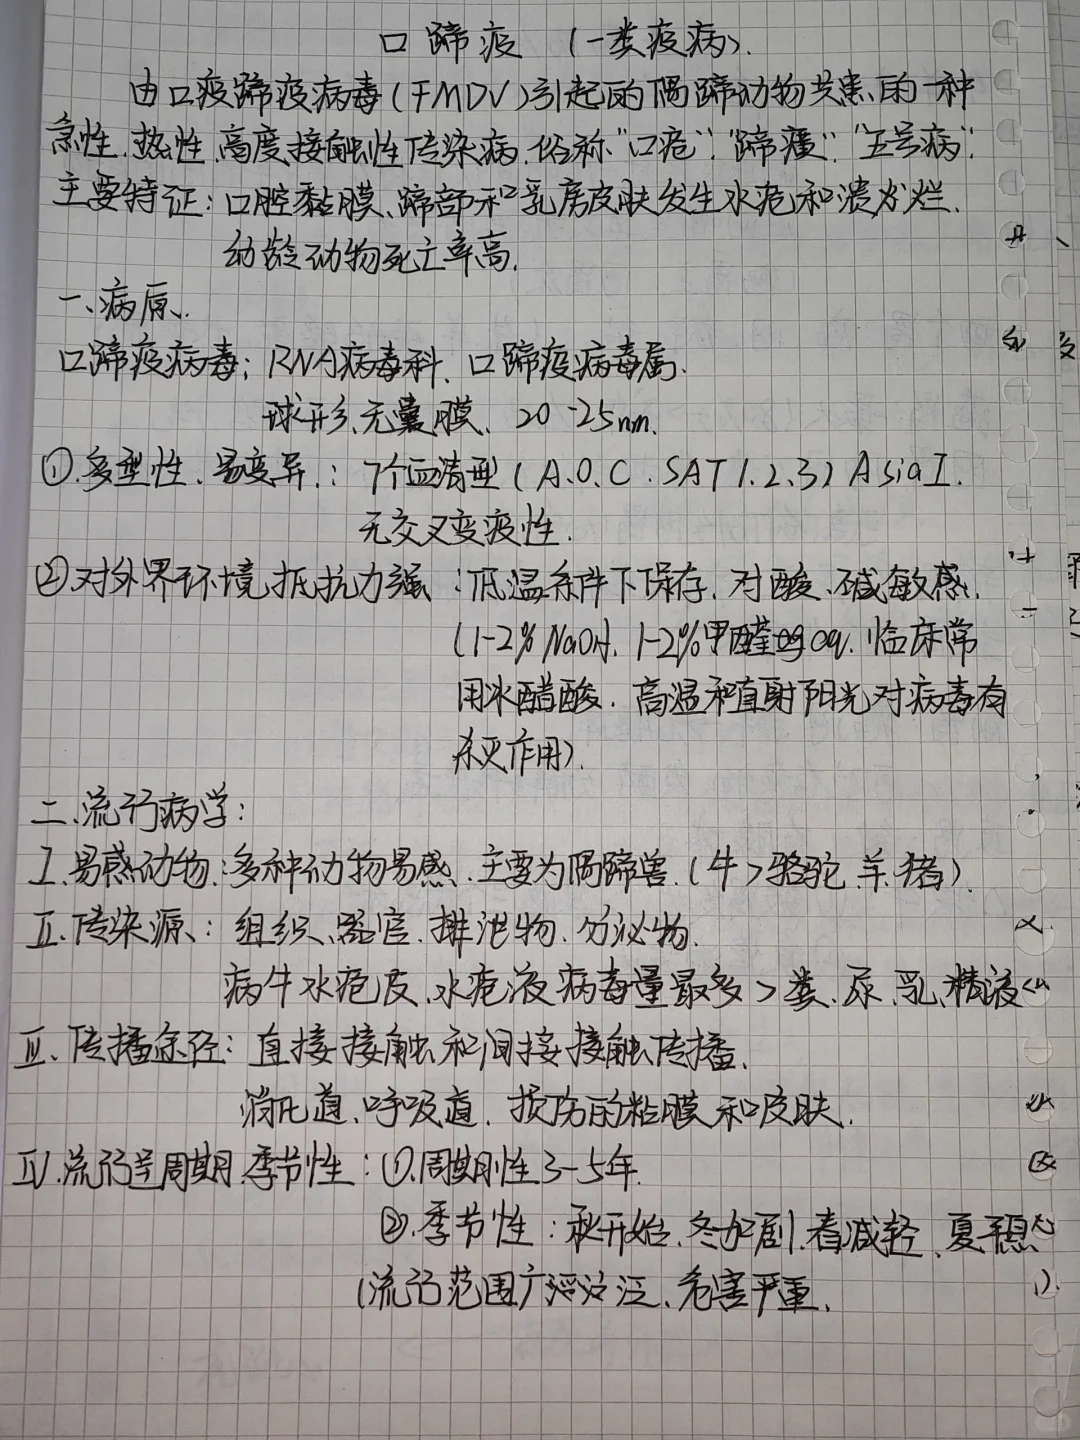 口蹄疫 (一类疫病).
由口疫蹄疫病毒(FMDV)引起的偶蹄动物共患的一种
急性、热性、高度接触性传染病,俗称“口疮”、“蹄癀”、“五号病”.
主要特征:口腔黏膜、蹄部和乳房皮肤发生水疱和溃烂.
幼龄动物死亡率高.
一、病原.
口蹄疫病毒:RNA病毒科、口蹄疫病毒属.
球形、无囊膜、20-25nm.
①.多型性、易变异.:7个血清型(A.O.C.SAT1.2.3)AsiaI.
无交叉变疫性.
②对外界环境抵抗力强:低温条件下保存,对酸、碱敏感.
(1-2%NaOH、1-2%甲醛 临床常
用冰醋酸.高温和直射阳光对病毒有
杀灭作用).
二、流行病学:
I.易感动物:多种动物易感、主要为偶蹄兽.(牛>骆驼、羊、猪).
II.传染源:组织、器官、排泄物、分泌物.
病牛水疱皮、水疱液病毒量最多>粪、尿、乳、精液
III.传播途径:直接接触和间接接触传播.
消化道、呼吸道、损伤的粘膜和皮肤.
IV.流行周期、季节性:①.周期性3-5年.
②.季节性:秋开始、冬加剧、春减轻、夏平息
(流行范围广泛、危害严重.